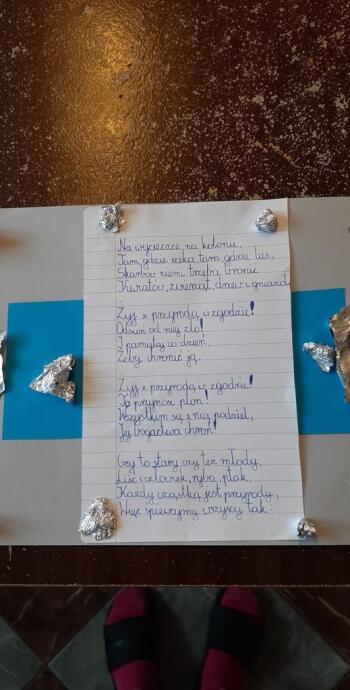 Na wycieczce, na kolonii,
Tam, gdzie rzeka, tam gdzie las.
Skarbów ziemi trzeba bronić
Kwiatów, zwierząt, drzew i gniazd.
Żyj z przyrodą w zgodzie!
Odsuń od niej zło!
I pamiętaj co dzień,
Żeby chronić ją.
Żyj z przyrodą w zgodzie!
To przynosi plon!
Wszystkim się z nią podziel,
Jej bogactwa chroń!
Czy to stary czy też młody,
Liść i człowiek, ryba, ptak.
Każdy cząstką jest przyrody,
Więc śpiewajmy wszyscy tak: